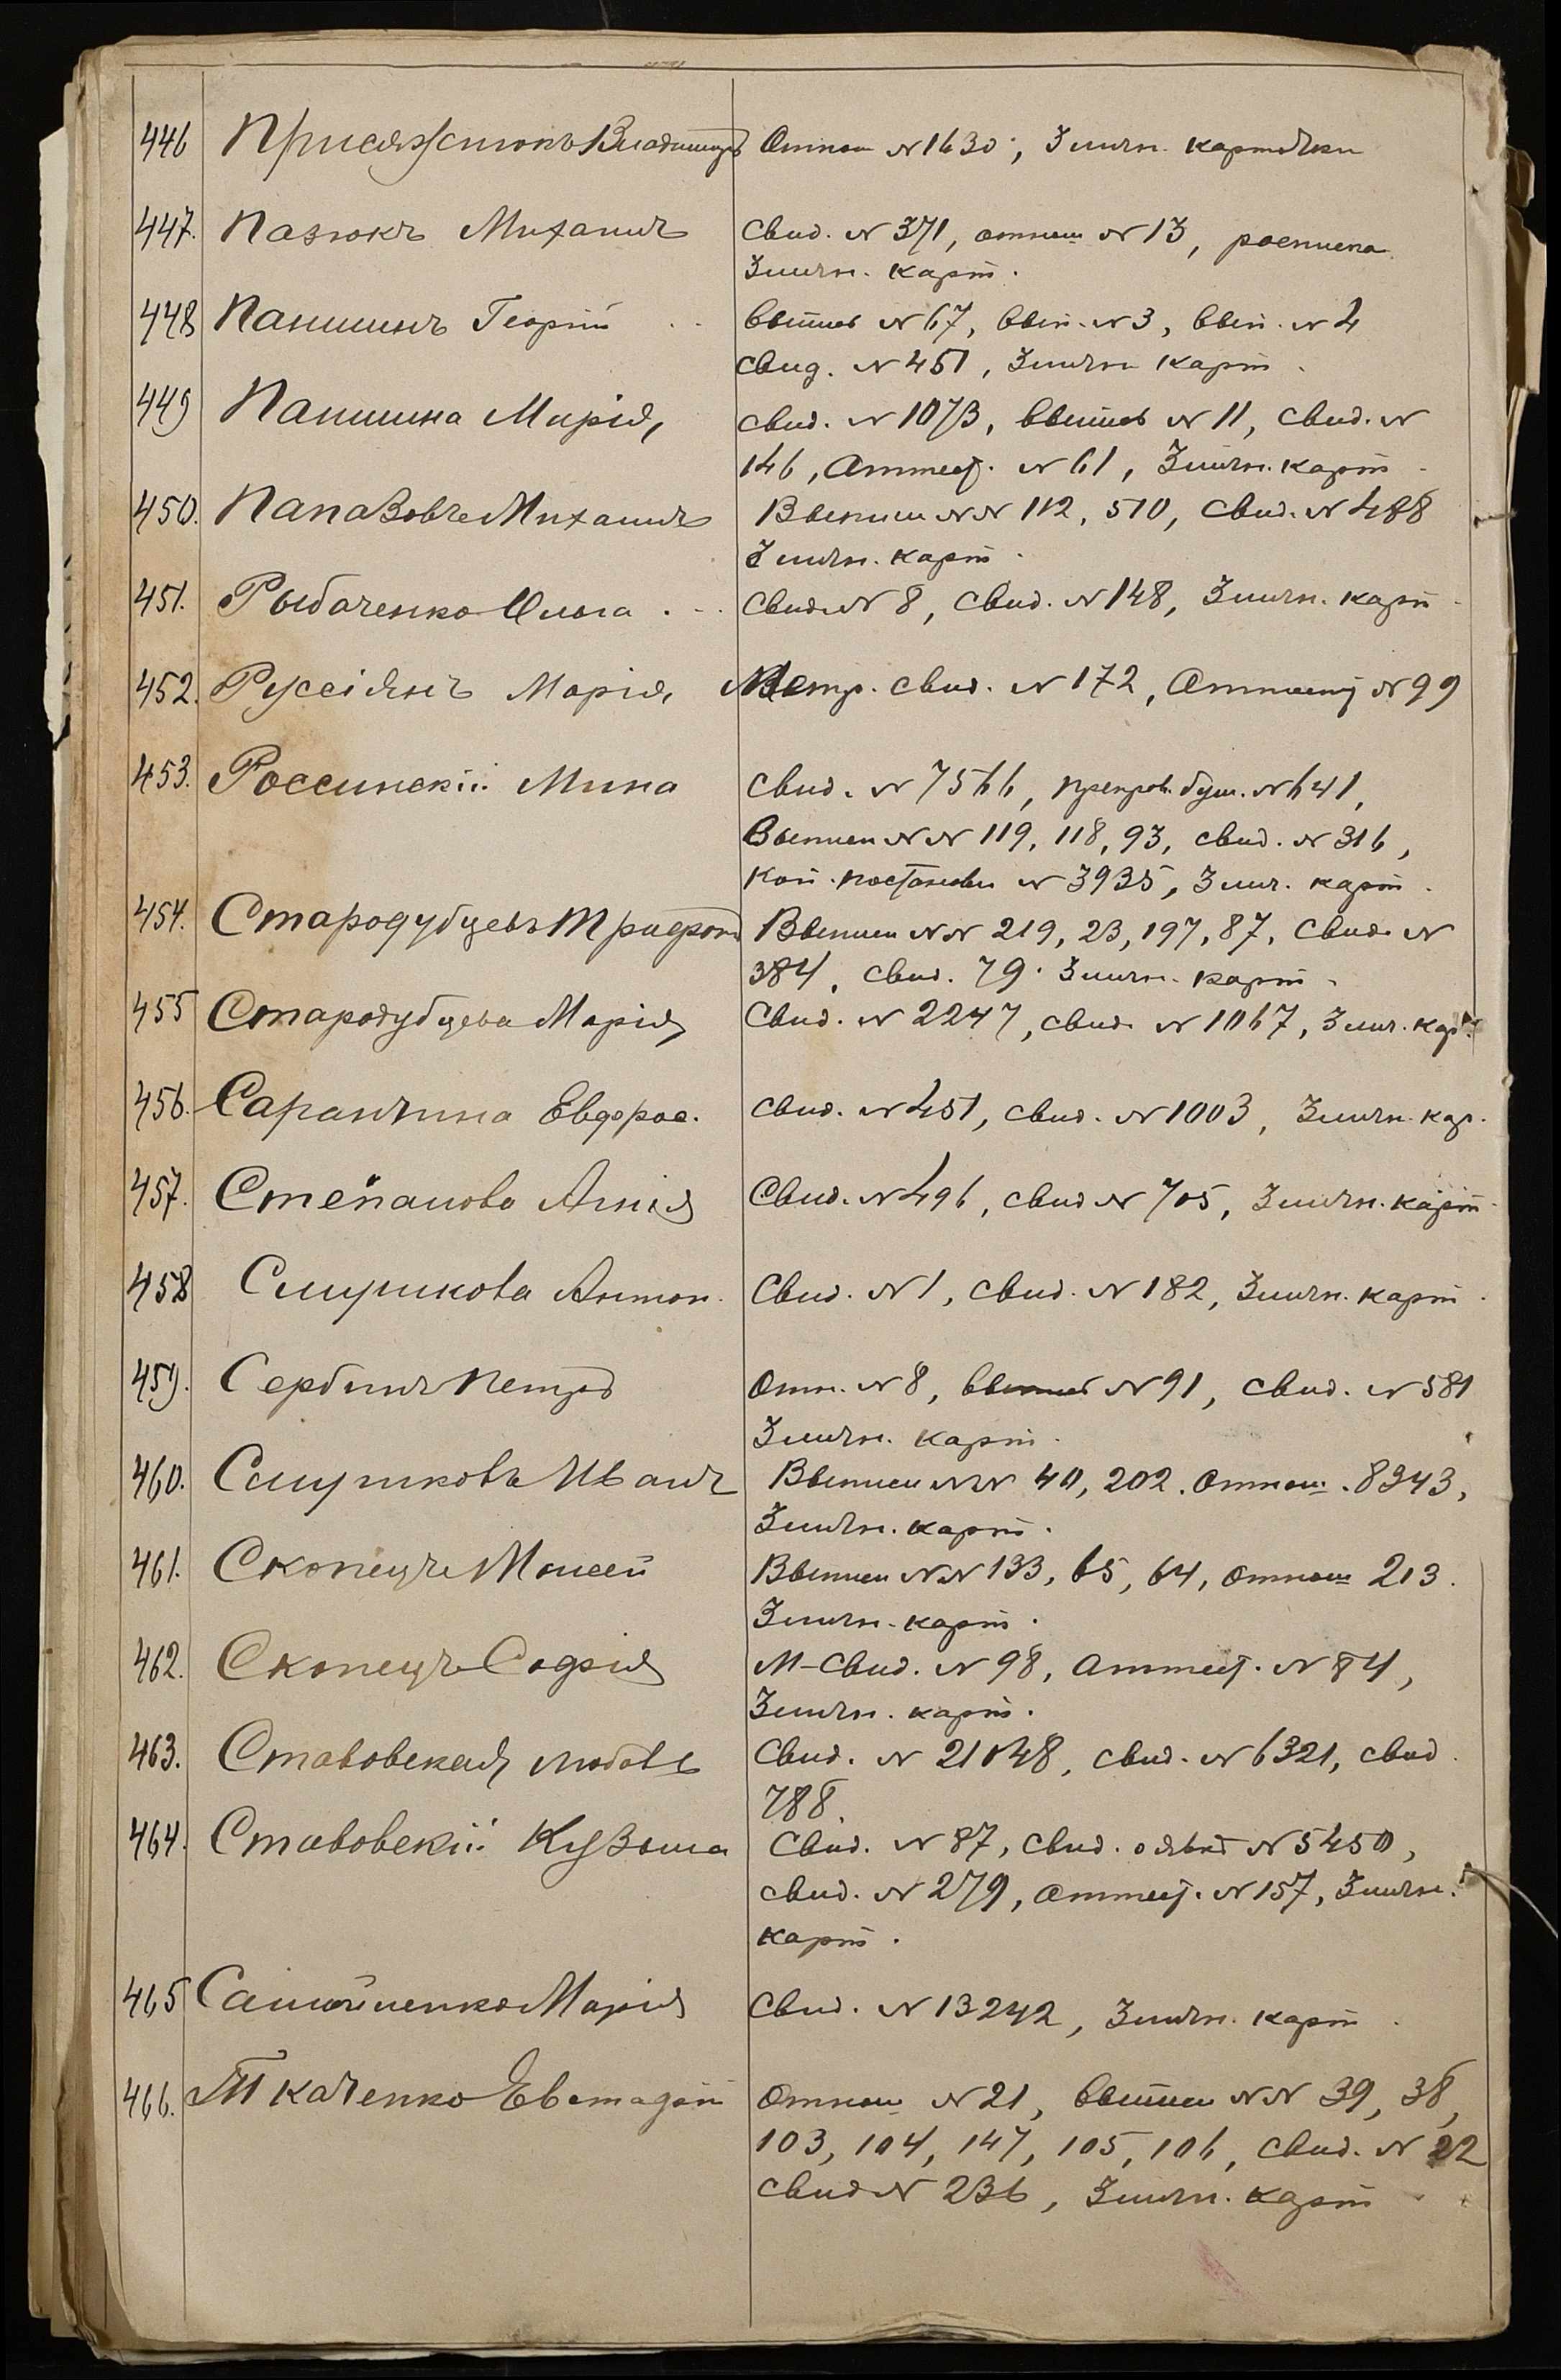 446 Присяжнюкъ Владиміръ Отнош № 1630, 3 личн. карточки
447. Пазюкъ Михаилъ Свид. № 371, отнош № 13, росписка
3 личн. карт.
448 Паншинъ Георгій Выпись № 67, вып. № 3, вып. № 4
свид. № 451, 3 личн карт.
449 Паншина Марія, свид. № 1073, выпись № 11, свид. №
146, Аттест. № 61, 3 личн. карт.
450. Папазовъ Михаилъ Выписи №№ 112, 510, Свид. № 488
3 личн. карт.
451. Рыбаченко Ольга Свид. № 8, Свид. № 148, 3 личн. карт
452. Руссіянъ Марія, Метр. свид. № 172, Аттест № 99
453. Россинскій Мина Свид. № 7566, препров. бум. № 641,
Выписи №№ 119, 118, 93, свид. № 316,
Коп. постановл № 3935, 3 лич. карт.
454. Стародубцевъ Трифонъ Выписи №№ 219, 23, 197, 87, Свид. №
384, свид. 79. 3 личн. карт.
455 Стародубцева Марія, Свид. № 2247, свид. № 1067, 3 лич. кар.
456. Саранчина Евфрос. свид. № 451, свид. № 1003, 3 личн. кар.
457. Степанова Анна Свид. № 496, свид № 705, 3 личн. карт
458 Слушкова Антон. Свид. № 1, Свид. № 182, 3 личн. карт.
459. Сербинъ Петръ Отн. № 8, выпись № 91, свид. № 581
3 личн. карт.
460. Слушковъ Иванъ Выписи №№ 40, 202. Отнош. 8243,
3 личн. карт.
461. Скопецъ Моисей Выписи №№ 133, 65, 64, отнош 213.
3 личн. карт.
462. Скопецъ Софія М-Свид. № 98, Аттест. № 84,
3 личн. карт.
463. Ставовская, Любовь Свид. № 21048, свид. № 6321, свид.
788.
464. Ставовскій Кузьма Свид. № 87, свид. № 5450,
свид. № 279, Аттест. № 157, 3 личн.
карт.
465 Самойленко Марія Свид. № 13242, 3 личн. карт.
466. Ткаченко Евстафій Отнош № 21, Выписи №№ 39, 38,
103, 104, 147, 105, 106, свид. № 22
свид № 236, 3 личн. карт